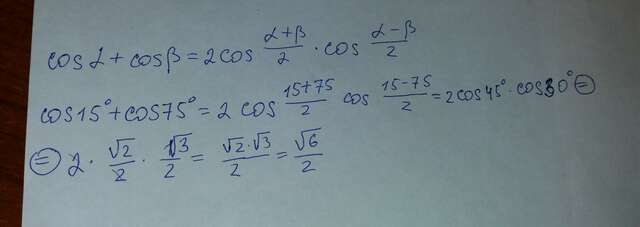 cos α + cos β = 2cos (α+β)/2 · cos (α-β)/2
cos15° + cos75° = 2 cos (15+75)/2 cos (15-75)/2 = 2cos45° · cos30° =
= 2 · √2/2 · √3/2 = (√2·√3)/2 = √6/2